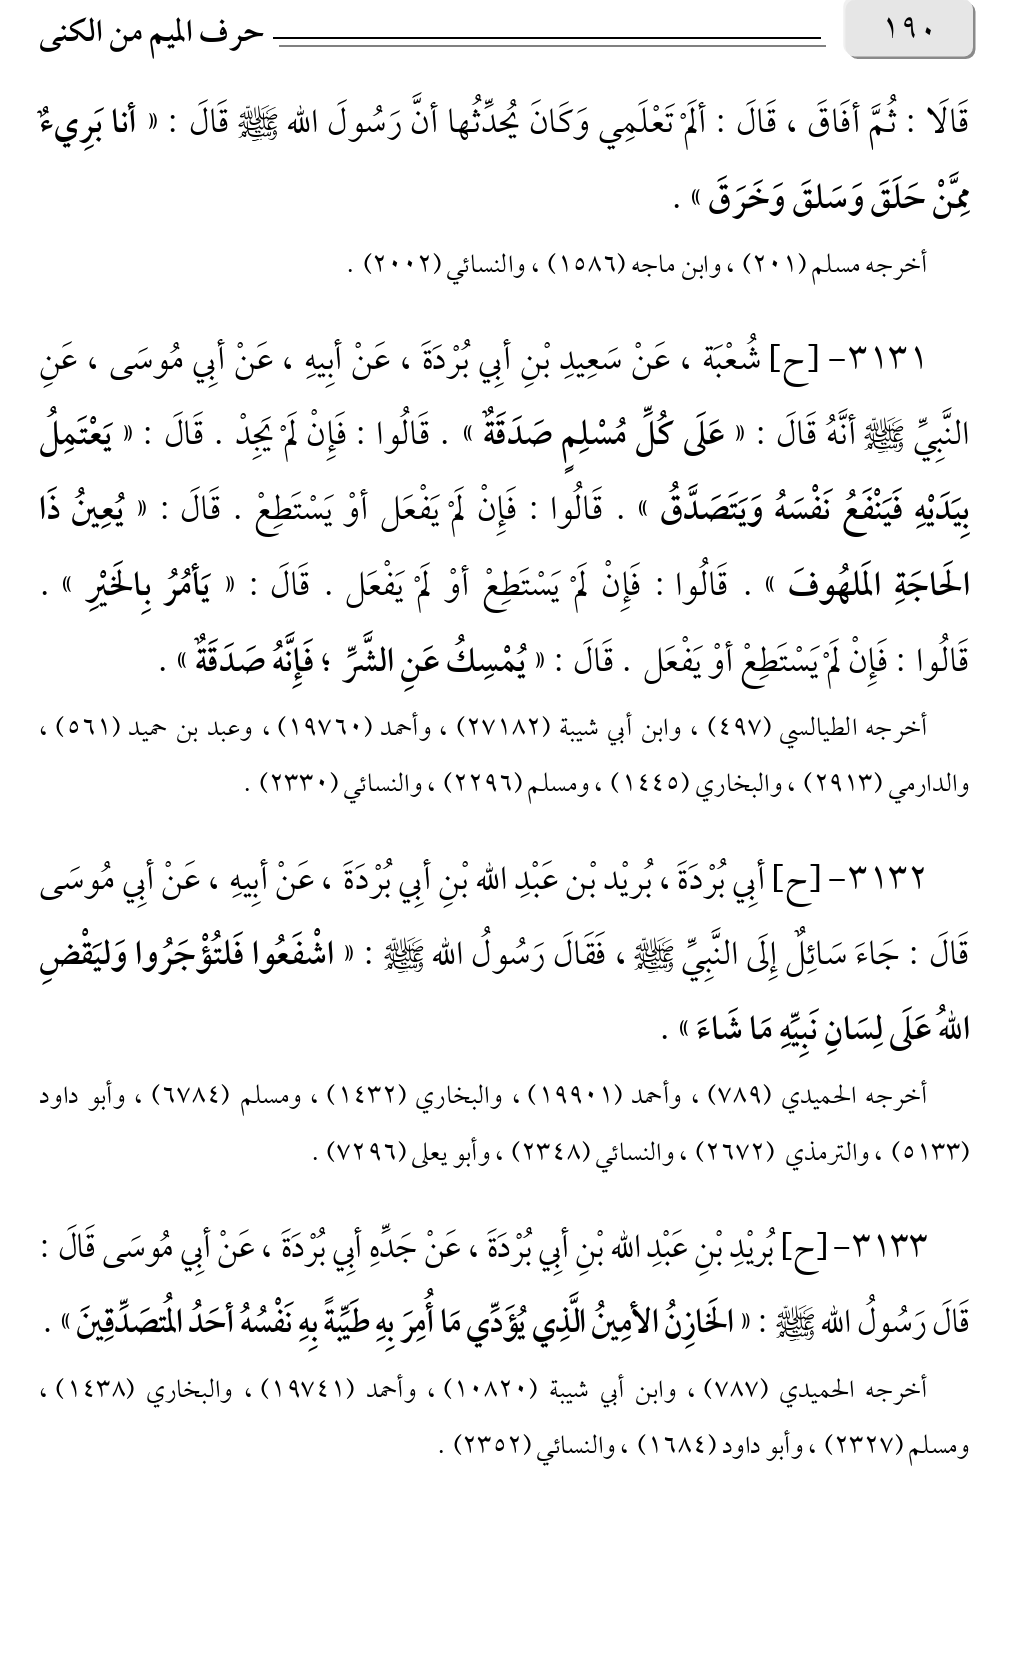 ١٩٠
حرف الميم من الكنى
قَالَا : ثُمَّ أفَاقَ ، قَالَ : ألَمْ تَعْلَمِي وَكَانَ يُحدِّثُها أنَّ رَسُولَ الله ﷺ قَالَ : « أنا بَرِيءٌ
مِمَّنْ حَلَقَ وَسَلقَ وَخَرَقَ » .
أخرجه مسلم (٢٠١) ، وابن ماجه (١٥٨٦) ، والنسائي (٢٠٠٢) .
٣١٣١- [ح] شُعْبَة ، عَنْ سَعِيدِ بْنِ أبِي بُرْدَةَ ، عَنْ أبِيهِ ، عَنْ أبِي مُوسَى ، عَنِ
النَّبِيِّ ﷺ أنَّهُ قَالَ : « عَلَى كُلِّ مُسْلِمٍ صَدَقَةٌ » . قَالُوا : فَإِنْ لَمْ يَجِدْ . قَالَ : « يَعْتَمِلُ
بِيَدَيْهِ فَيَنْفَعُ نَفْسَهُ وَيَتَصَدَّقُ » . قَالُوا : فَإِنْ لَمْ يَفْعَل أوْ يَسْتَطِعْ . قَالَ : « يُعِينُ ذَا
الحَاجَةِ المَلهُوفَ » . قَالُوا : فَإِنْ لَمْ يَسْتَطِعْ أوْ لَمْ يَفْعَل . قَالَ : « يَأمُرُ بِالخَيْرِ » .
قَالُوا : فَإِنْ لَمْ يَسْتَطِعْ أوْ يَفْعَل . قَالَ : « يُمْسِكُ عَنِ الشَّرِّ ؛ فَإِنَّهُ صَدَقَةٌ » .
أخرجه الطيالسي (٤٩٧) ، وابن أبي شيبة (٢٧١٨٢) ، وأحمد (١٩٧٦٠) ، وعبد بن حميد (٥٦١) ،
والدارمي (٢٩١٣) ، والبخاري (١٤٤٥) ، ومسلم (٢٢٩٦) ، والنسائي (٢٣٣٠) .
٣١٣٢- [ح] أبِي بُرْدَةَ ، بُريْد بْن عَبْدِ الله بْنِ أبِي بُرْدَةَ ، عَنْ أبِيهِ ، عَنْ أبِي مُوسَى
قَالَ : جَاءَ سَائِلٌ إِلَى النَّبِيِّ ﷺ ، فَقَالَ رَسُولُ الله ﷺ : « اشْفَعُوا فَلتُؤْجَرُوا وَليَقْضِ
اللهُ عَلَى لِسَانِ نَبِيِّهِ مَا شَاءَ » .
أخرجه الحميدي (٧٨٩) ، وأحمد (١٩٩٠١) ، والبخاري (١٤٣٢) ، ومسلم (٦٧٨٤) ، وأبو داود
(٥١٣٣) ، والترمذي (٢٦٧٢) ، والنسائي (٢٣٤٨) ، وأبو يعلى (٧٢٩٦) .
٣١٣٣- [ح] بُريْدِ بْنِ عَبْدِ الله بْنِ أبِي بُرْدَةَ ، عَنْ جَدِّهِ أبِي بُرْدَةَ ، عَنْ أبِي مُوسَى قَالَ :
قَالَ رَسُولُ الله ﷺ : « الخَازِنُ الأمِينُ الَّذِي يُؤَدِّي مَا أُمِرَ بِهِ طَيِّبَةً بِهِ نَفْسُهُ أحَدُ المُتصَدِّقِينَ » .
أخرجه الحميدي (٧٨٧) ، وابن أبي شيبة (١٠٨٢٠) ، وأحمد (١٩٧٤١) ، والبخاري (١٤٣٨) ،
ومسلم (٢٣٢٧) ، وأبو داود (١٦٨٤) ، والنسائي (٢٣٥٢) .